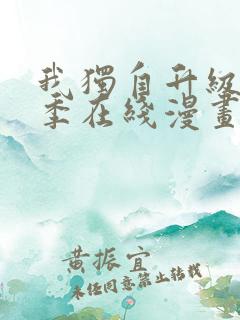 我獨自升級
季在綫漫畫
黄振宜
未經同意禁止轉載